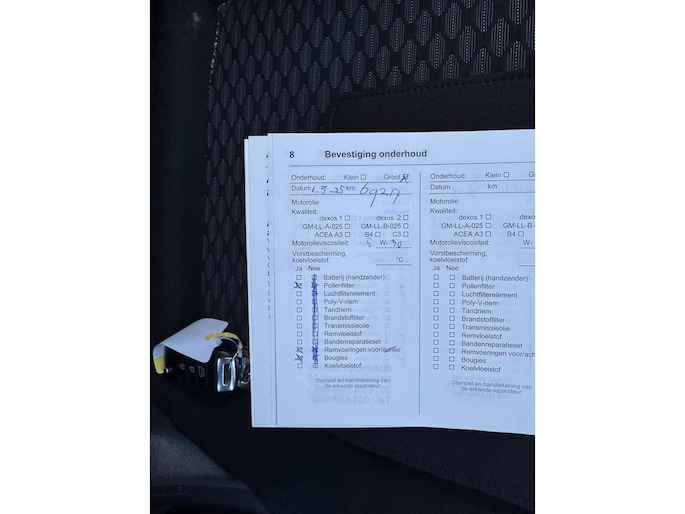 8 Bevestiging onderhoud
Onderhoud: Klein ☐ Groot ☒
Datum 1-5-25 km 69217
Motorolie
Kwaliteit:
dexos 1 ☐ dexos 2 ☐
GM-LL-A-025 ☐ GM-LL-B-025 ☐
ACEA A3 ☐ B4 ☐ C3 ☐
Motorolieviscositeit: 5 W- 30
Vorstbescherming,
koelvloeistof °C
Ja Nee
Batterij (handzender)
Pollenfilter
Luchtfilterelement
Poly-V-riem
Tandriem
Brandstoffilter
Transmissieolie
Remvloeistof
Bandenreparatieset
Remvoeringen voor/achter
Bougies
Koelvloeistof
Stempel en handtekening van
de erkende reparateur
Onderhoud: Klein ☐ Groot
Datum km
Motorolie
Kwaliteit:
dexos 1 ☐
GM-LL-A-025 ☐ GM-LL-B-
ACEA A3 ☐ B4 ☐
Motorolieviscositeit: W-
Vorstbescherming,
koelvloeistof
Ja Nee
Batterij (handzender)
Pollenfilter
Luchtfilterelement
Poly-V-riem
Tandriem
Brandstoffilter
Transmissieolie
Remvloeistof
Bandenreparatieset
Remvoeringen voor/ach
Bougies
Koelvloeistof
Stempel en handtekening van
de erkende reparateur